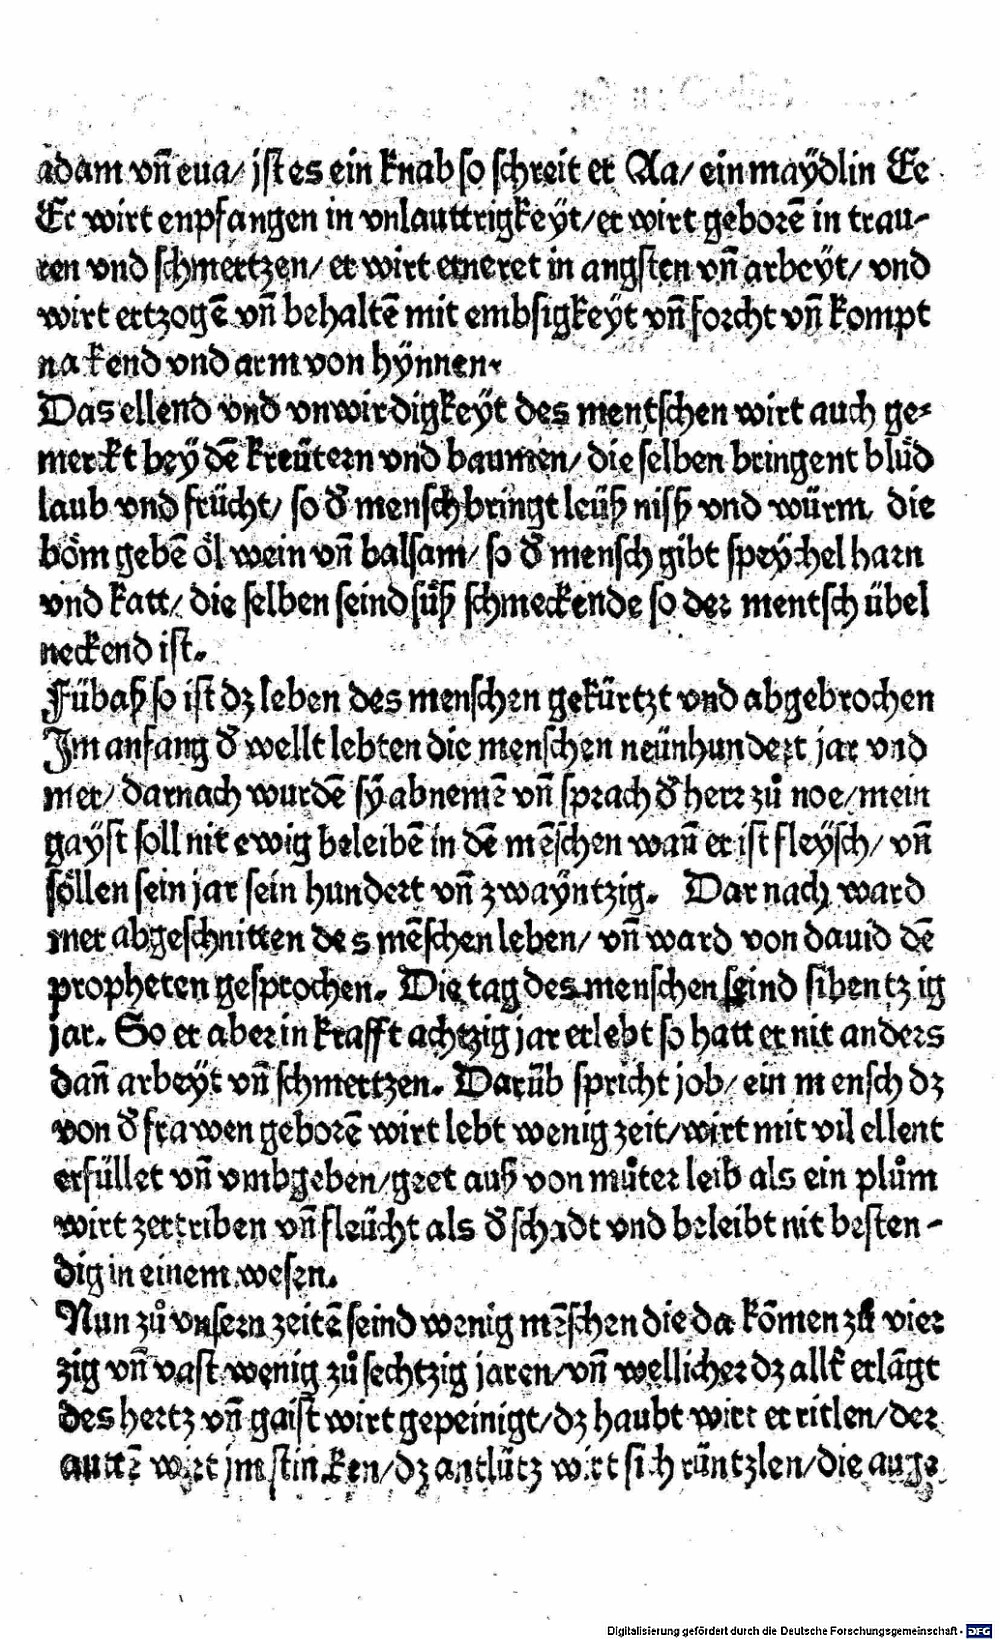 adam vn̄ eua/ ist es ein knab so schreit er Aa/ ein maÿdlin Ee
Er wirt enpfangen in vnlauttrigkeÿt/ er wirt geborē in trau-
ren vnd schmertzen/ er wirt erneret in angsten vn̄ arbeÿt/ vnd
wirt ertzogē vn̄ behaltē mit embsigkeÿt vn̄ forcht vn̄ kompt
nakend vnd arm von hÿnnen.
Das ellend vnd vnwirdigkeÿt des mentschen wirt auch ge-
merckt beÿ dē kreütern vnd baumen/ die selben bringent blüd
laub vnd frücht/ so d̄ mensch bringt leüß nisß vnd würm. die
böm gebē öl wein vn̄ balsam/ so d̄ mensch gibt speÿchel harn
vnd katt/ die selben seind süß schmeckende so der mentsch übel
neckend ist.
Fübaß so ist dz leben des menschen gekürtzt vnd abgebrochen
Im anfang d̄ wellt lebten die menschen neünhundert jar vnd
mer/ darnach wurdē sÿ abnemē vn̄ sprach d̄ herr zů noe/ mein
gaÿst soll nit ewig beleibē in dē mēschen wan̄ er ist fleÿsch/ vn̄
söllen sein jar sein hundert vn̄ zwaÿntzig. Dar nach ward
mer abgeschnitten des mēschen leben/ vn̄ ward von dauid dē
propheten gesprochen. Die tag des menschen seind sibentzig
jar. So er aber in krafft achtzig jar erlebt so hatt er nit anders
dan̄ arbeÿt vn̄ schmertzen. Darūb spricht job/ ein mensch dz
von d̄ frawen geborē wirt lebt wenig zeit/ wirt mit vil ellent
erfüllet vn̄ vmbgeben/ geet auß von můter leib als ein plům
wirt zertriben vn̄ fleücht als d̄ schadt vnd beleibt nit besten-
dig in einem wesen.
Nun zů vnsern zeitē seind wenig mēschen die da kōmen zů vier
zig vn̄ vast wenig zů sechtzig jaren/ vn̄ wellicher dz allt̄ erlāgt
des hertz vn̄ gaist wirt gepeinigt/ dz haubt wirt er ritlen/ der
auttē wirt jm stincken/ dz antlütz wirt sich rüntzlen/ die auge
Digitalisierung gefördert durch die Deutsche Forschungsgemeinschaft - DFG